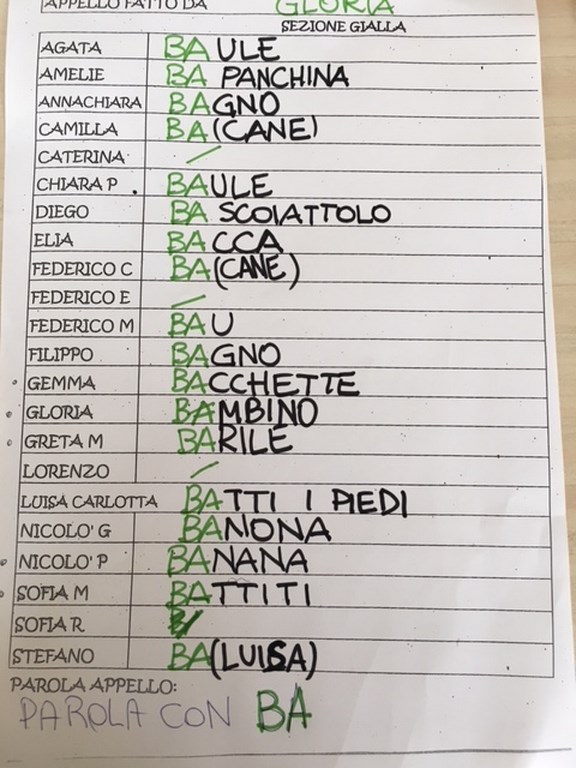 APPELLO FATTO DA GLORIA
SEZIONE GIALLA
AGATA BAULE
AMELIE BA PANCHINA
ANNACHIARA BAGNO
CAMILLA BA(CANE)
CATERINA /
CHIARA P BAULE
DIEGO BA SCOIATTOLO
ELIA BACCA
FEDERICO C BA(CANE)
FEDERICO E /
FEDERICO M BAU
FILIPPO BAGNO
GEMMA BACCHETTE
GLORIA BAMBINO
GRETA M BARILE
LORENZO /
LUISA CARLOTTA BATTI I PIEDI
NICOLO' G BANONA
NICOLO' P BANANA
SOFIA M BATTITI
SOFIA R
STEFANO BA(LUISA)
PAROLA APPELLO:
PAROLA CON BA